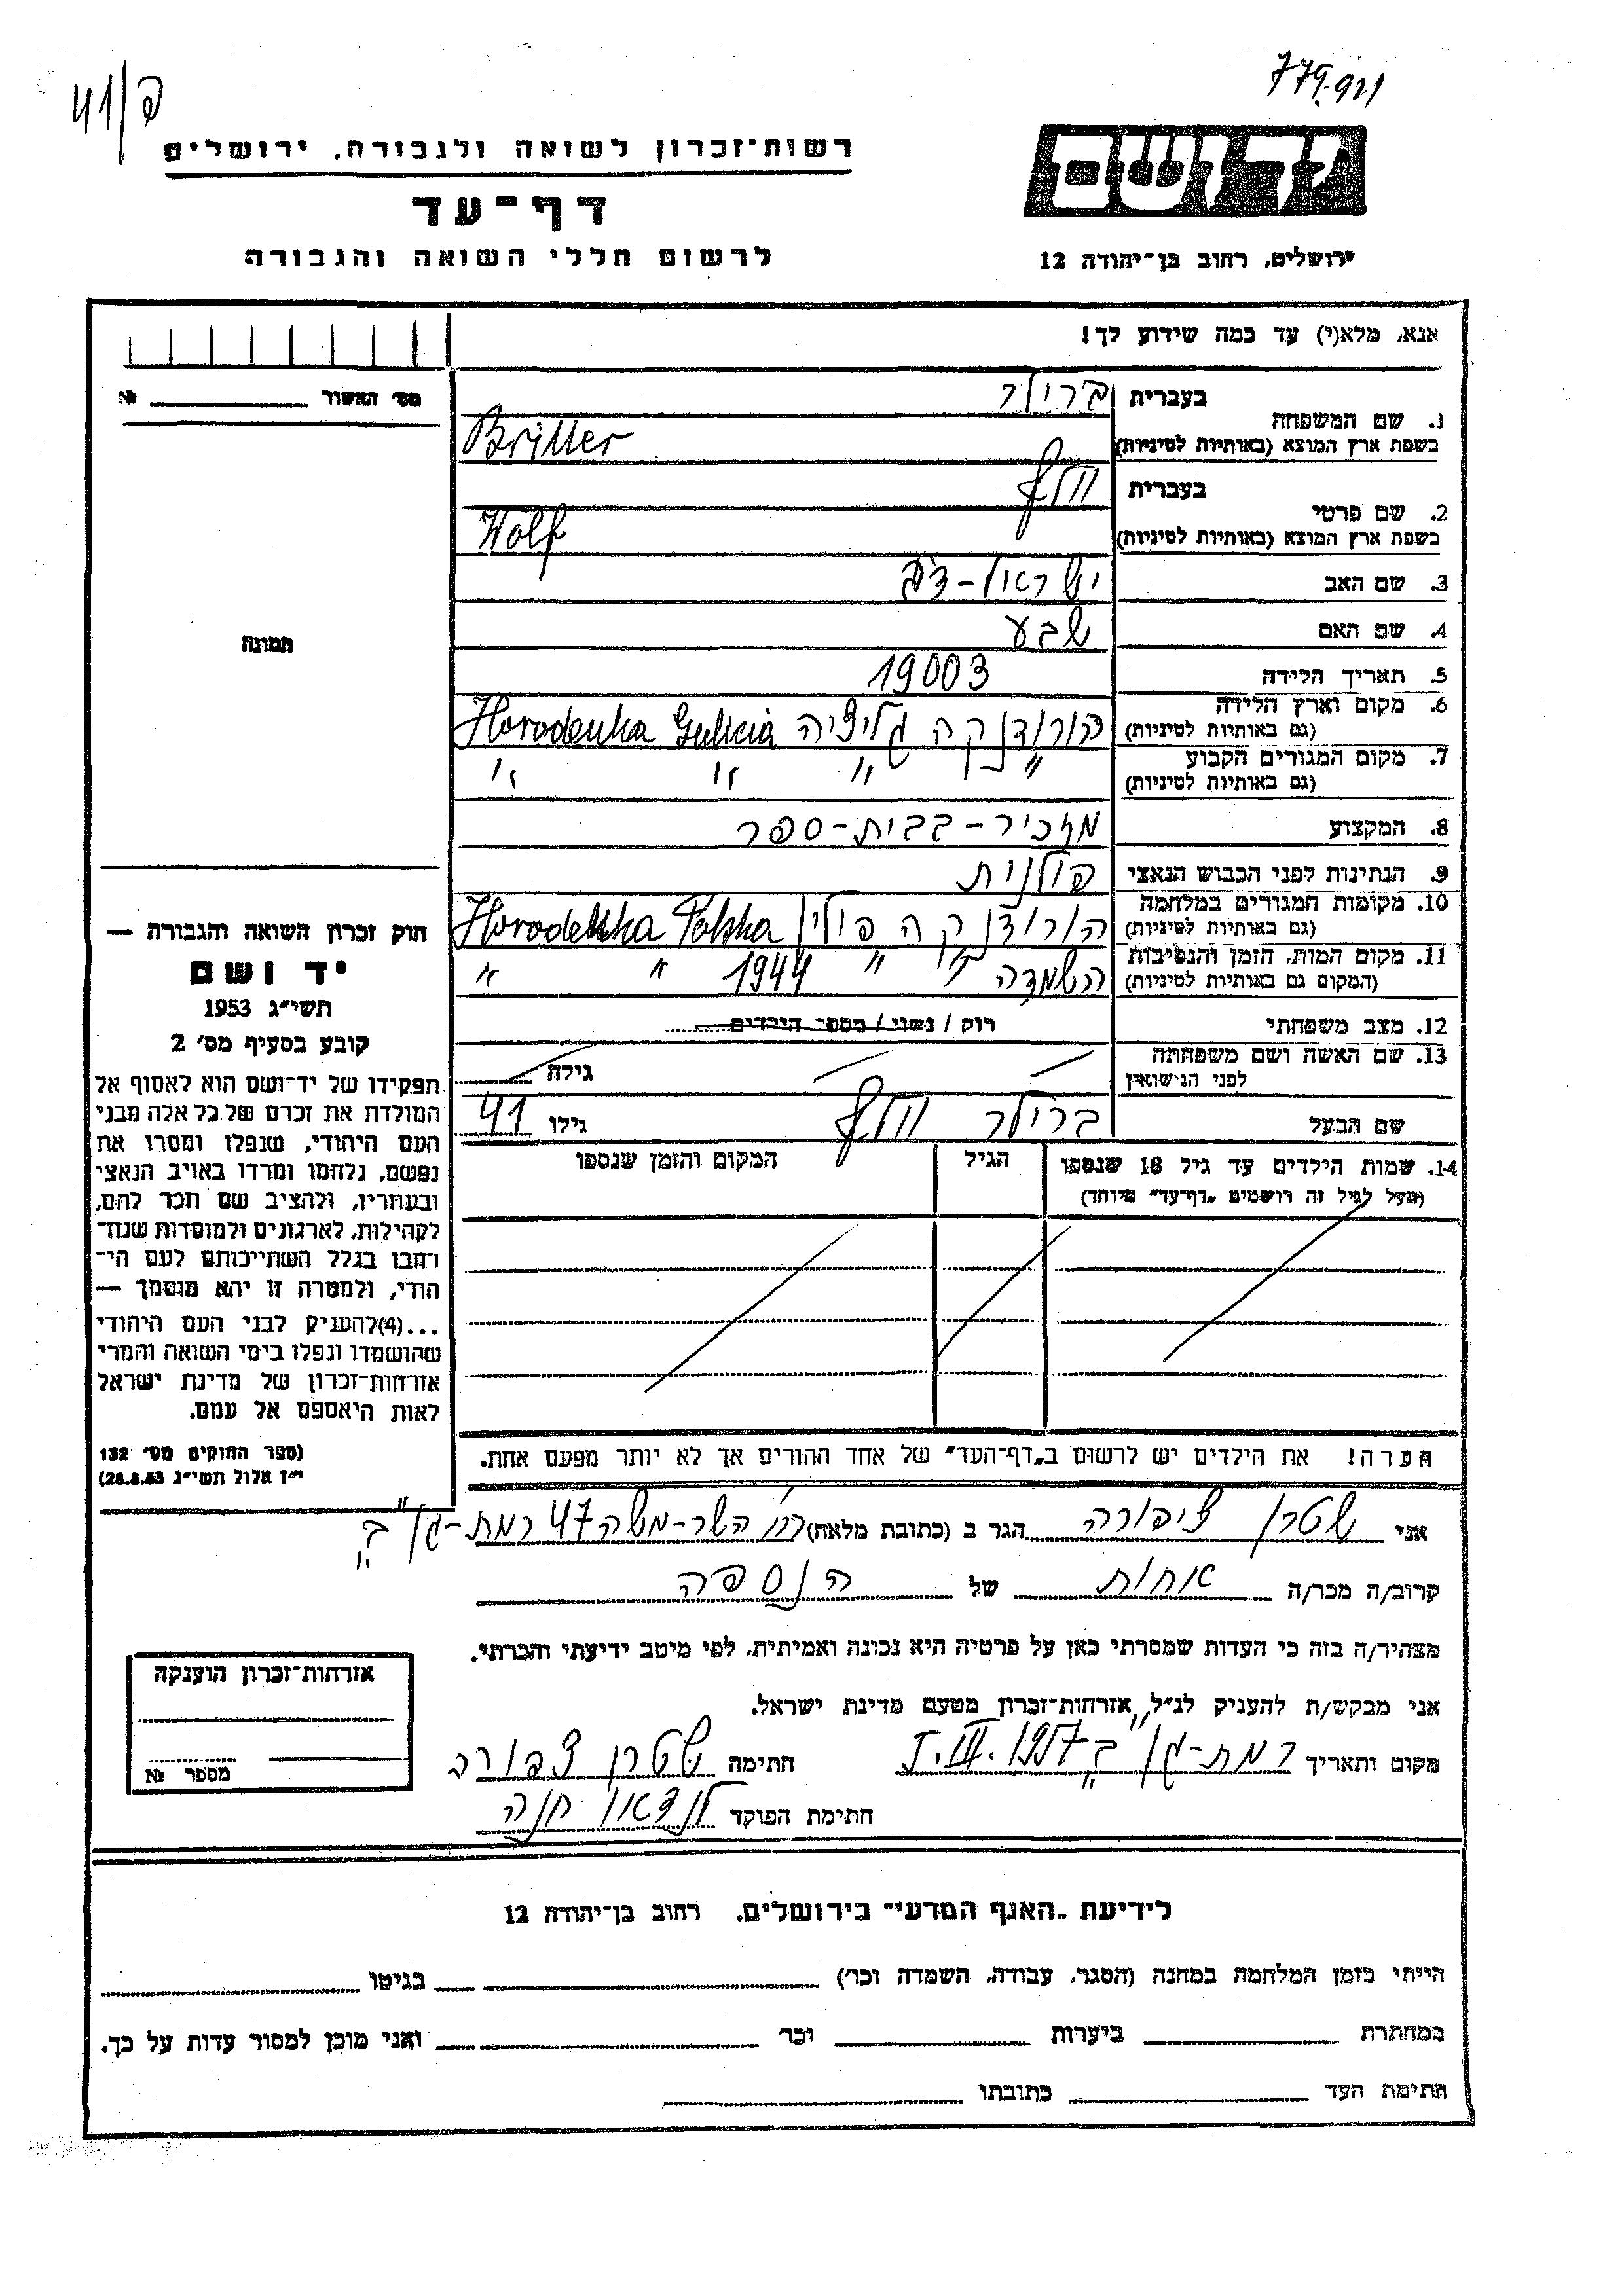 779.921
פ/41
יד ושם
רשות-זכרון לשואה ולגבורה, ירושלים
דף-עד
לרשום חללי השואה והגבורה
ירושלים, רחוב בן-יהודה 12
אנא, מלא(י) עד כמה שידוע לך!
מס' האשור № 
1. שם המשפחה
בעברית ברילר
בשפת ארץ המוצא (באותיות לטיניות) Briller
2. שם פרטי
בעברית וולף
בשפת ארץ המוצא (באותיות לטיניות) Wolf
3. שם האב ישראל-
4. שם האם שבע
תמונה
5. תאריך הלידה 19003
6. מקום וארץ הלידה הורודנקה גליציה Horodenka Galicia
(גם באותיות לטיניות)
7. מקום המגורים הקבוע " " " "
(גם באותיות לטיניות)
8. המקצוע מזכיר-בבית-ספר
9. הנתינות לפני הכבוש הנאצי פולנית
10. מקומות המגורים במלחמה הורודנקה פולין Horodenka Polska
(גם באותיות לטיניות)
11. מקום המות, הזמן והנסיבות השמדה " " 1944 " "
(המקום גם באותיות לטיניות)
12. מצב משפחתי רוק / נשוי / מספר הילדים
13. שם האשה ושם משפחתה
לפני הנישואין
גילה
שם הבעל ברילר וולף גילו 41
14. שמות הילדים עד גיל 18 שנספו
(מעל לגיל זה רושמים "דף-עד" מיוחד)
הגיל
המקום והזמן שנספו
חוק זכרון השואה והגבורה —
יד ושם
תשי"ג 1953
קובע בסעיף מס' 2
תפקידו של יד-ושם הוא לאסוף אל
המולדת את זכרם של כל אלה מבני
העם היהודי, שנפלו ומסרו את
נפשם, נלחמו ומרדו באויב הנאצי
ובעוזריו, ולהציב שם וזכר להם,
לקהילות, לארגונים ולמוסדות שנח־
רבו בגלל השתייכותם לעם הי־
הודי, ולמטרה זו יהא מוסמך —
...(4)להעניק לבני העם היהודי
שהושמדו ונפלו בימי השואה והמרי
אזרחות-זכרון של מדינת ישראל
לאות היאספם אל עמם.
(ספר החוקים מס' 132
י"ז אלול תשי"ג 28.8.53)
הערה! את הילדים יש לרשום ב"דף-העד" של אחד ההורים אך לא יותר מפעם אחת.
אני שטרן ציפורה הגר ב (כתובת מלאה) רח' השר-משה 47 רמת-גן ב'
קרוב/ה מכר/ה אחות של הנספה
מצהיר/ה בזה כי העדות שמסרתי כאן על פרטיה היא נכונה ואמיתית, לפי מיטב ידיעתי והכרתי.
אני מבקש/ת להעניק לנ"ל, אזרחות-זכרון מטעם מדינת ישראל.
מקום ותאריך רמת-גן ב' 1957 חתימה שטרן צפורה
חתימת הפוקד לנדאו חנה
אזרחות-זכרון הוענקה
מספר №
לידיעת "האגף המדעי" בירושלים, רחוב בן-יהודה 12
הייתי בזמן המלחמה במחנה (הסגר, עבודה, השמדה וכו') בגיטו
במחתרת ביערות וכו' ואני מוכן למסור עדות על כך.
חתימת העד כתובתו